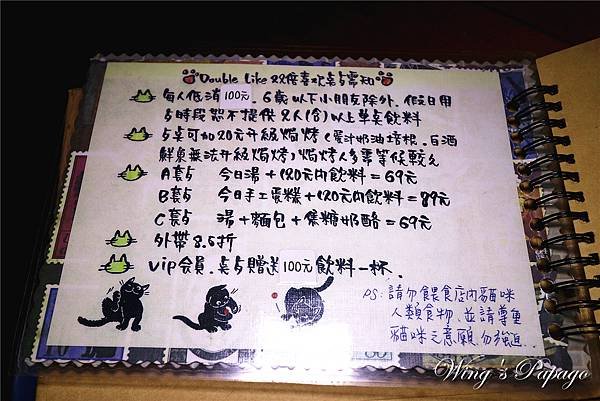 Double Like 双倍喜歡桌點需知
每人低消100元. 6歲以下小朋友除外. 假日用
點時段恕不提供2人(含)以上單桌飲料
點桌可加20元升級焗烤 (蛋汁奶油培根. 白酒
鮮魚無法升級焗烤) 焗烤人多需等候較久
A套點 今日湯+120元內飲料=69元
B套點 今日手工蛋糕+120元內飲料=89元
C套點 湯+麵包+焦糖奶酪=69元
外帶8.5折
vip會員. 桌點贈送100元飲料一杯.
PS: 請勿餵食店內貓咪
人類食物. 並請尊重
貓咪之意願. 勿強迫.
Wing's Papago